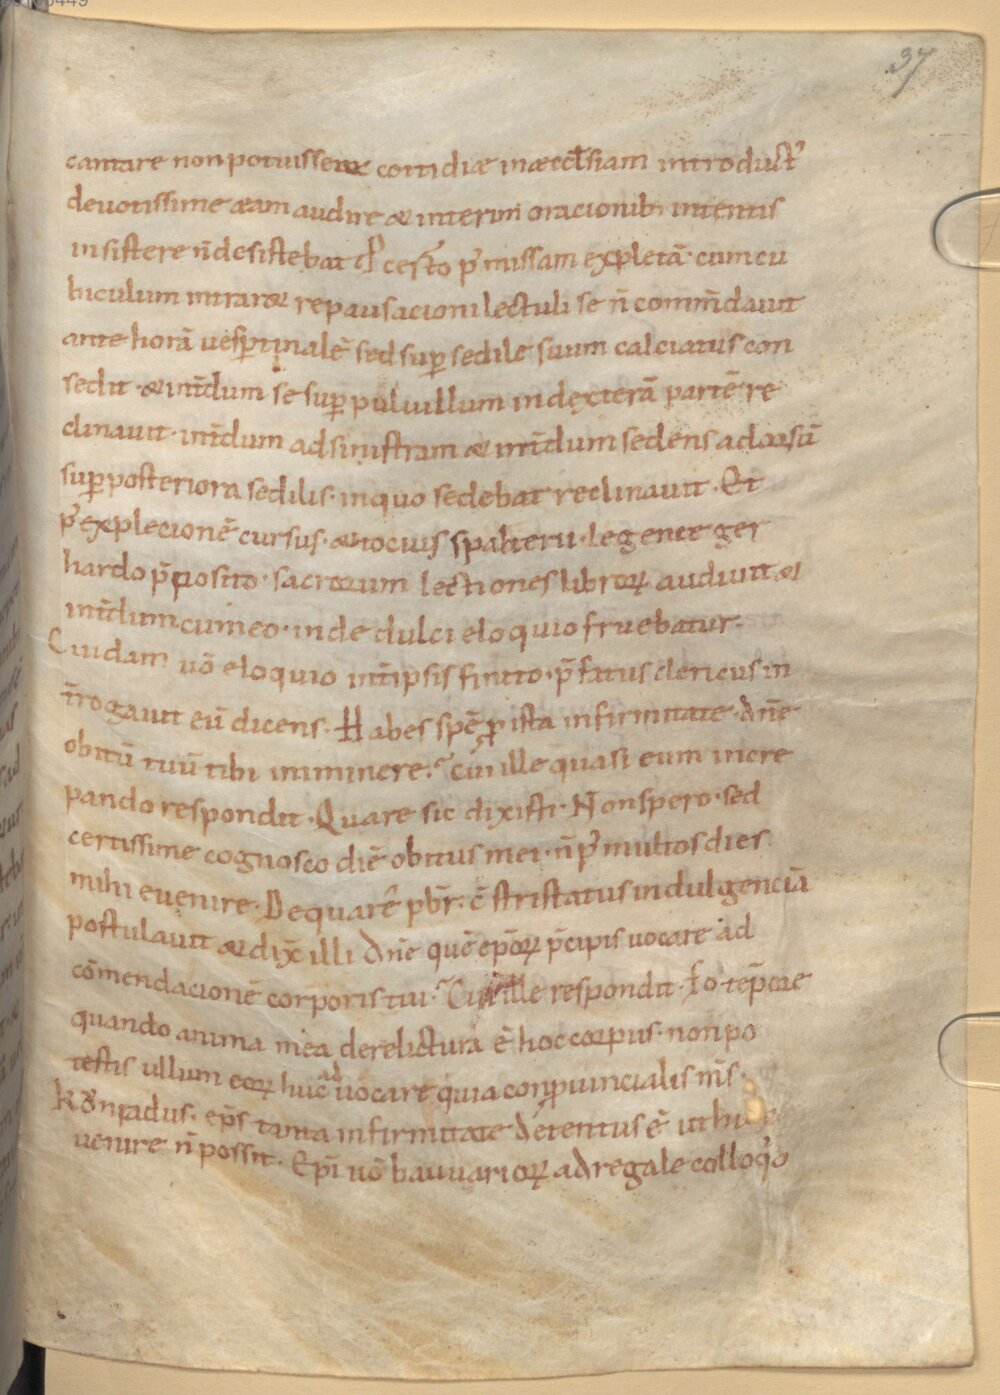 37
cantare non potuisset cottidiæ in æcclesiam introduct᷒
deuotissime æam audire & interim oracionib; intentis
insistere n̄ desistebat P̱cesto p᷒ missam expletā· cum cu
biculum intrar& repausacioni lectuli se n̄ comm̄dauit
ante horā uesp̱tinalē sed sup̱ sedile suum calciatus con
sedit ·& int̄dum se sup̱ puluillum in dexterā partē re
clinauit· int̄dum ad sinistram & int̄dum sedens adorsū
sup̱ posteriora sedilis· in quo sedebat reclinauit· Et
p᷒ explecionē cursus· & tocius spalterii· legente ger
hardo p̄posito· sacrorum lectiones libroꝝ audiuit &
int̄dum cum eo· inde dulci eloquio fruebatur·
Cuidam uō eloquio int̄ ipsis finito· p̄fatus clericus in
t̄rogauit eū dicens· Habes spē p̱ ista infirmitate· dn̄e
obitū tuū tibi imminere? Cui ille quasi eum incre
pando respondit· Quare sic dixisti· Non spero· sed
certissime cognosco diē obitus mei· n̄ p᷒ multos dies
mihi euenire· De quarē pb̄r· c̄stristatus indulgenciā
postulauit & dix̄ illi dn̄e quē ep̄oꝝ p̄cipis uocare ad
cōmendacionē corporis tui? Cui ille respondit· Io tēpore
quando anima mea derelictura ē hoc corpus· non po
testis ullum eoꝝ huc ad uocare quia conp̱uincialis nr̄s
K&nradus· ep̄s tanta infirmitate detentus ē ut huc
uenire n̄ possit· Ep̄i uō bauuarioꝝ ad regale colloq᷒o